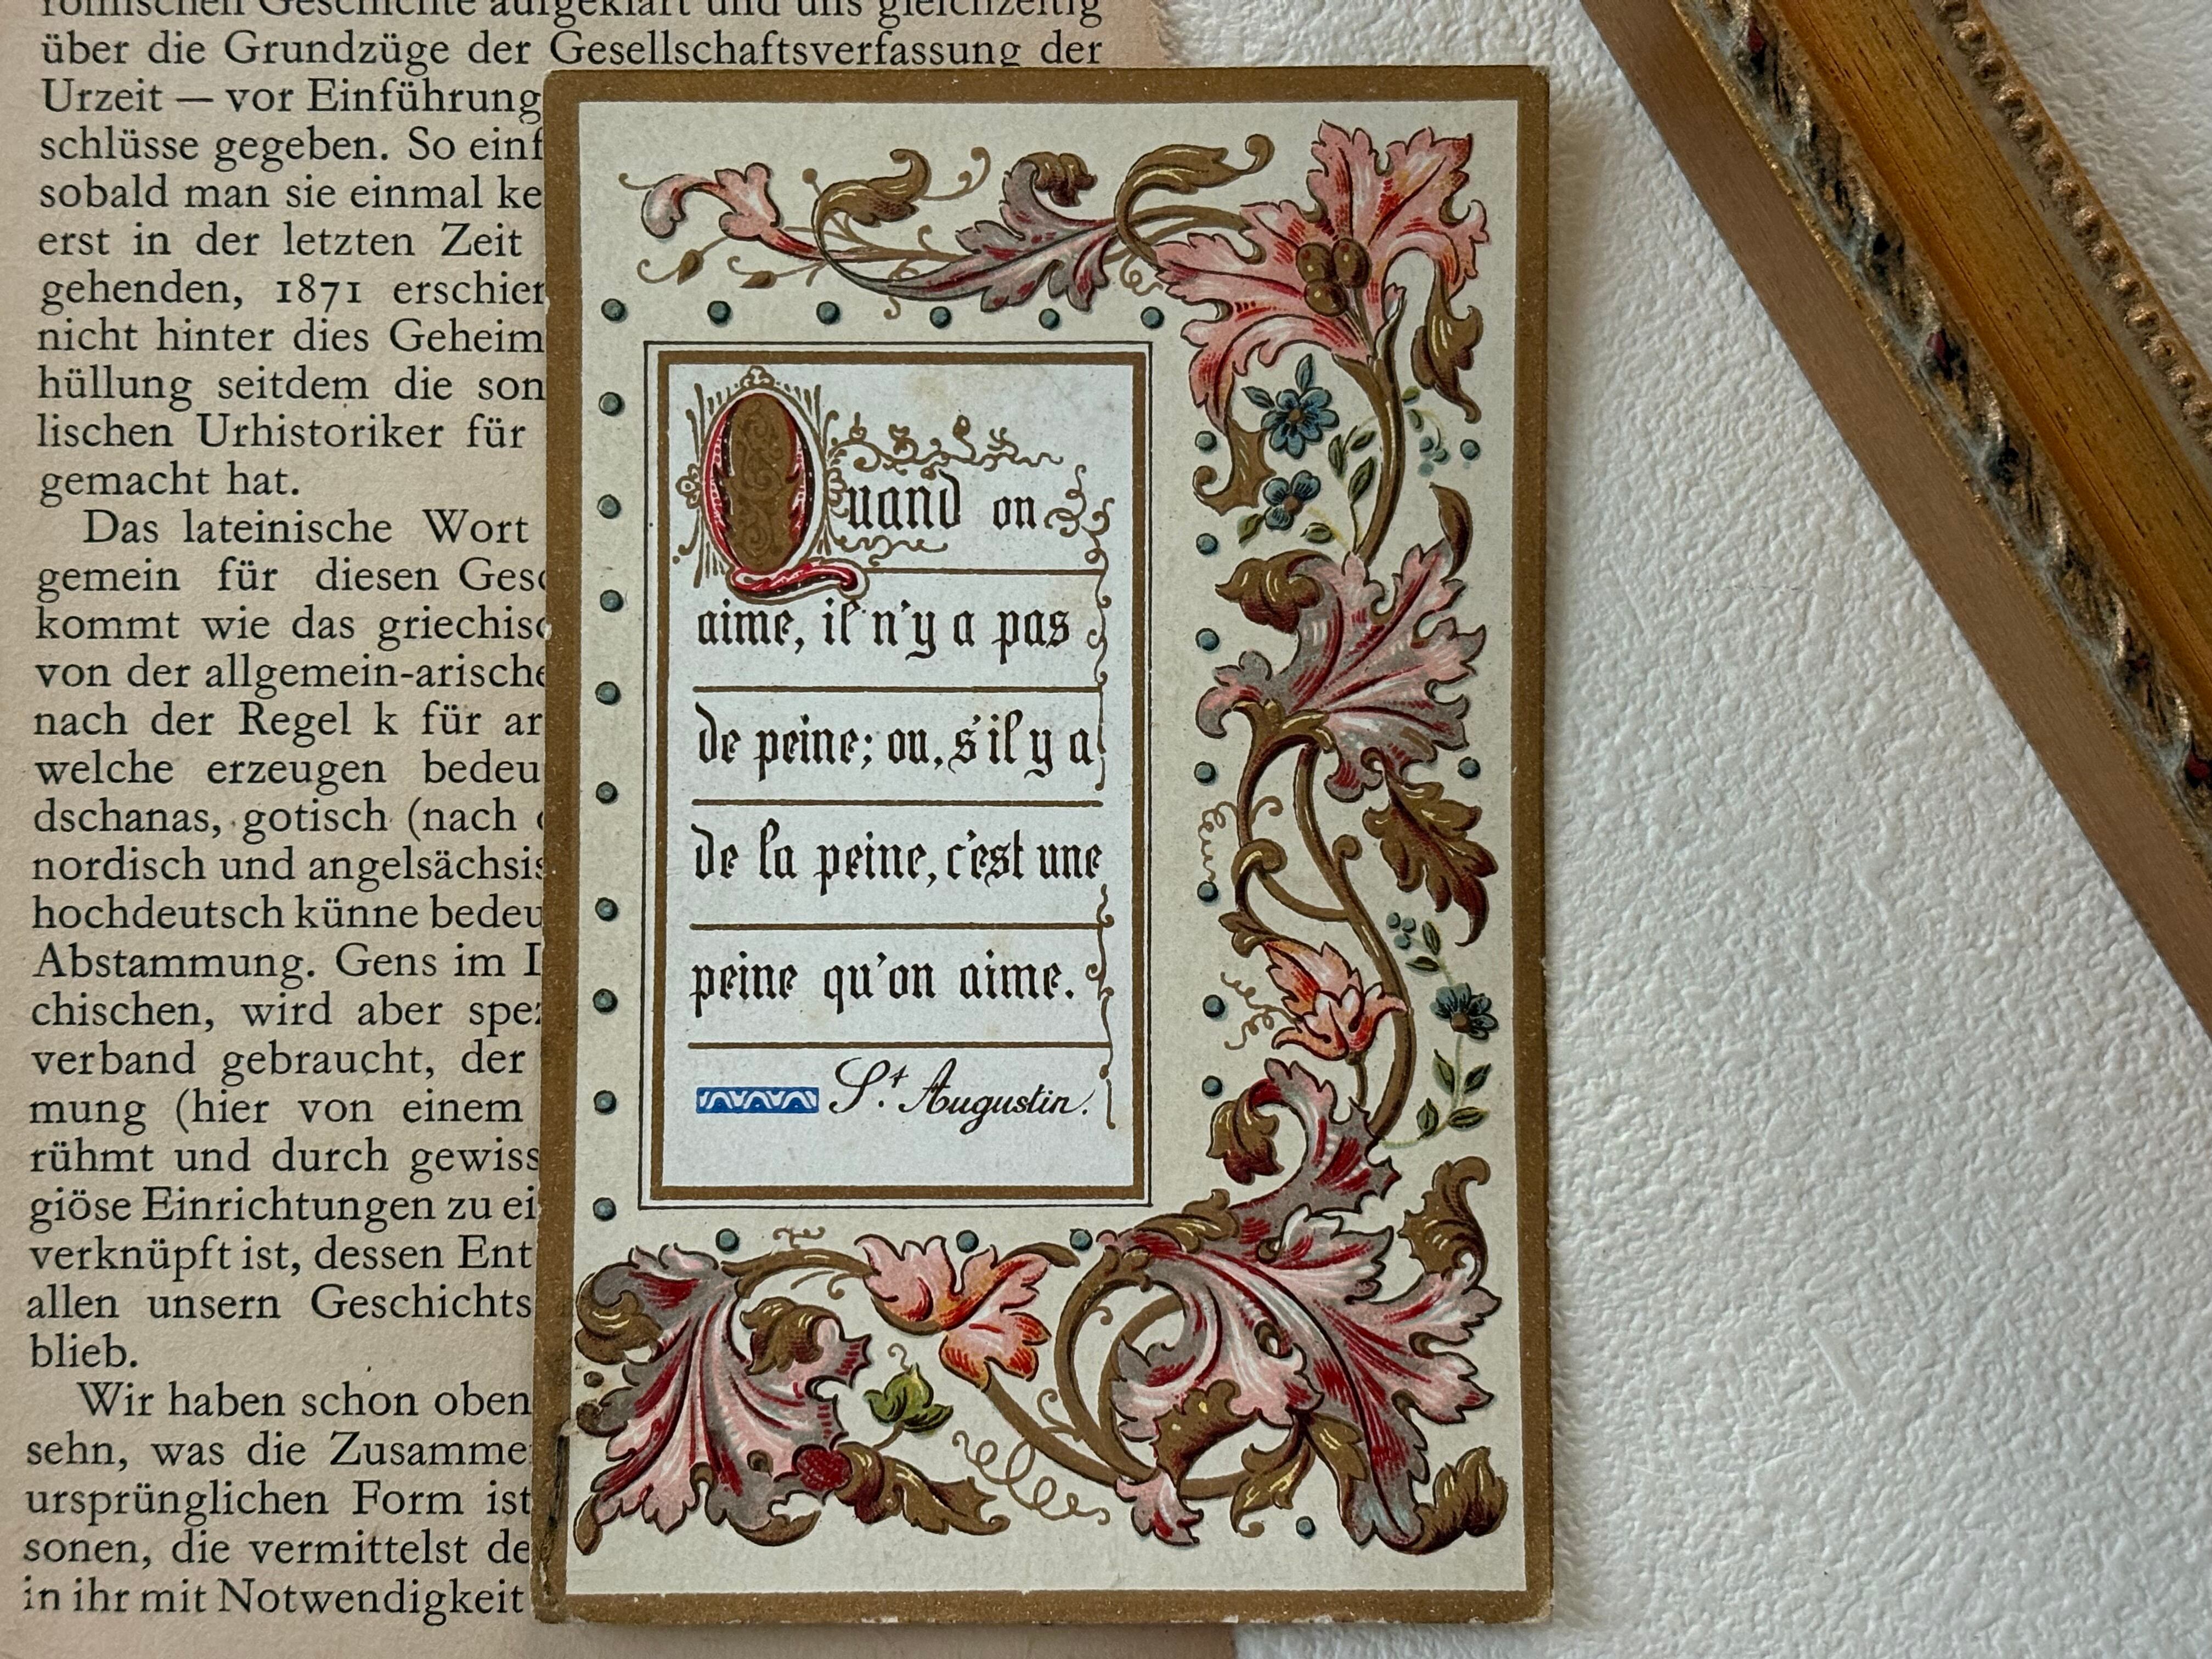 römischen Geschichte aufgeklärt und uns gleichzeitig
über die Grundzüge der Gesellschaftsverfassung der
Urzeit — vor Einführung
schlüsse gegeben. So
sobald man sie einmal
erst in der letzten Zeit
gehenden, 1871
nicht hinter dies
hüllung seitdem die
lischen Urhistoriker für
gemacht hat.
Das lateinische Wort
gemein für diesen
kommt wie das
von der
nach der Regel k für
welche erzeugen
dschanas, gotisch (nach
nordisch und
hochdeutsch künne
Abstammung. Gens im
chischen, wird aber
verband gebraucht, der
mung (hier von einem
rühmt und durch
giöse Einrichtungen zu
verknüpft ist, dessen
allen unsern
blieb.
Wir haben schon oben
sehn, was die
ursprünglichen Form ist
sonen, die vermittelst
in ihr mit Notwendigkeit
Quand on
aime, il n'y a pas
de peine; ou, s'il y a
de la peine, c'est une
peine qu'on aime.
St. Augustin.